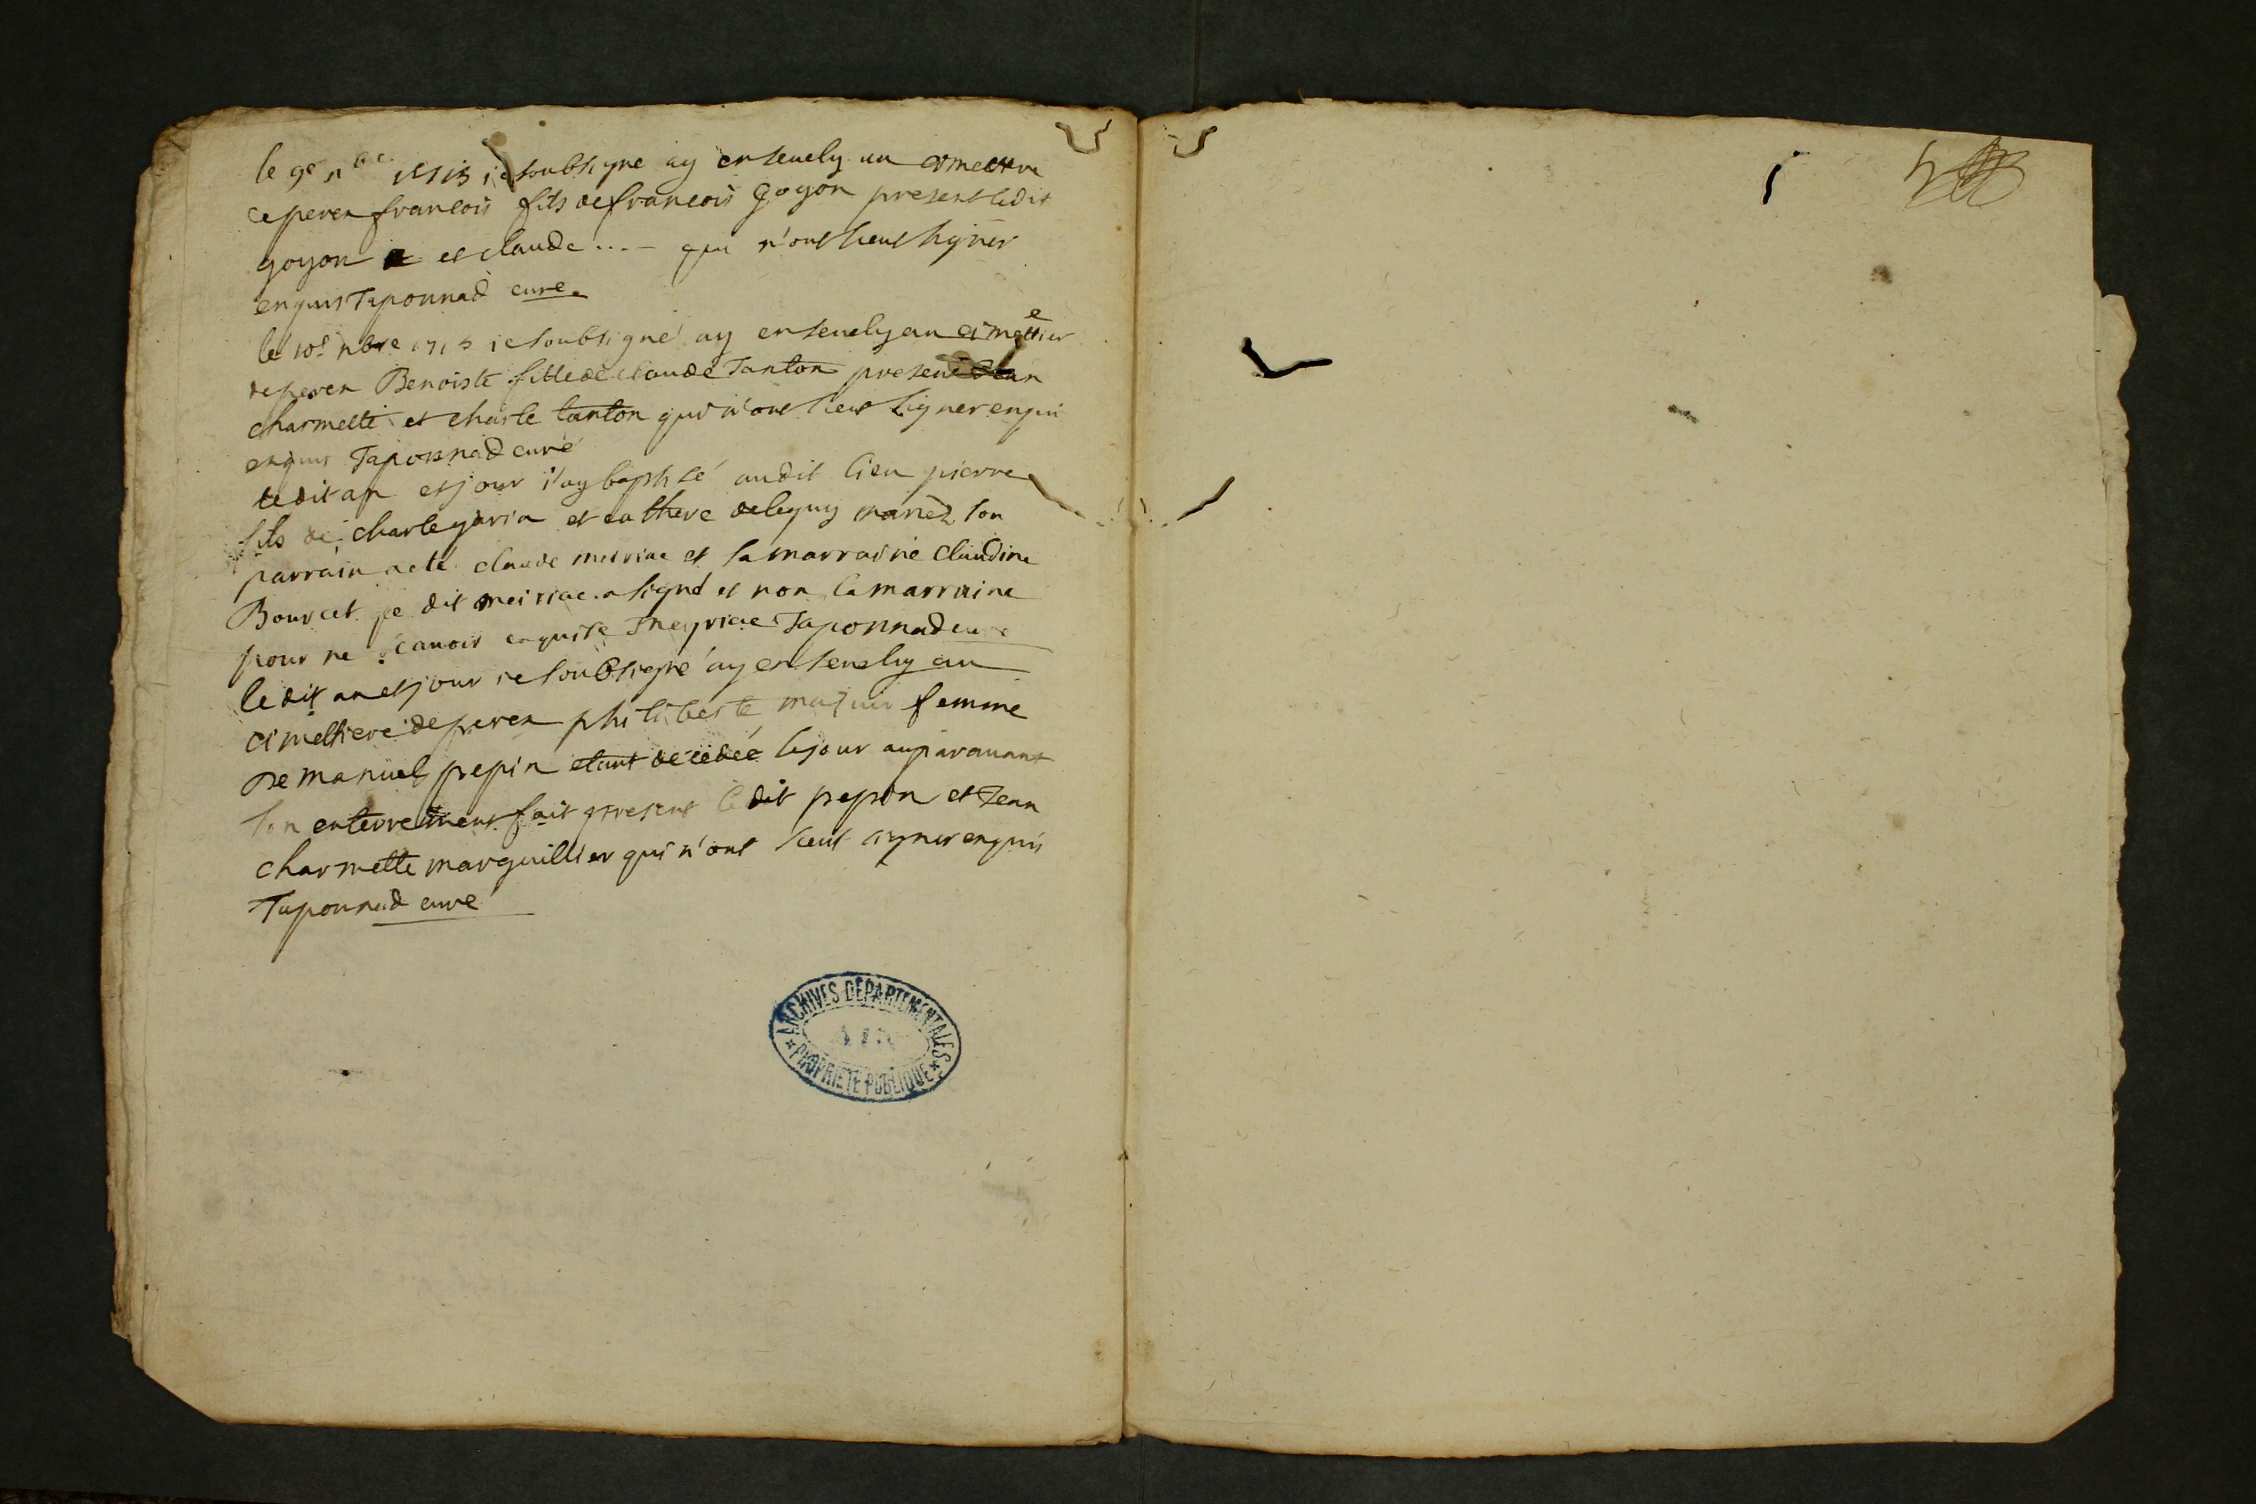 le 9e nbre 1713 ie soubsigne ay enseuely au cimettire
de peren francois fils de francois goyon present ledit
goyon et claude ... qui n'ont sceut signer
enquis Taponnad curé
le 10e nbre 1713 ie soubsigné ay enseuely au cimettier
de peren Benoiste fille de claude Tanton present Jean
charmette et charle tanton qui n'ont sceut signer enqui
enquis Taponnad curé
ledit an et jour i'ay baptisé audit lieu pierre
fils de charle garin et cathere deleguy mariez son
parrain acté claude meiriae et sa marraine claudine
Bourcet le dit meiriae a signé et non la marraine
pour ne scauoir enquise Meyriae Taponnad curé
le dit an et jour ie soubsigné ay enseuely au
cimettiere de peren philiberte femme
De manuel pepin etant decedée le jour auparauant
son enterrement fait present le dit pepin et Jean
charmette marguillier qui n'ont sceut signer enquis
Taponnad curé
ARCHIVES DÉPARTEMENTALES
AIN
PROPRIÉTÉ PUBLIQUE